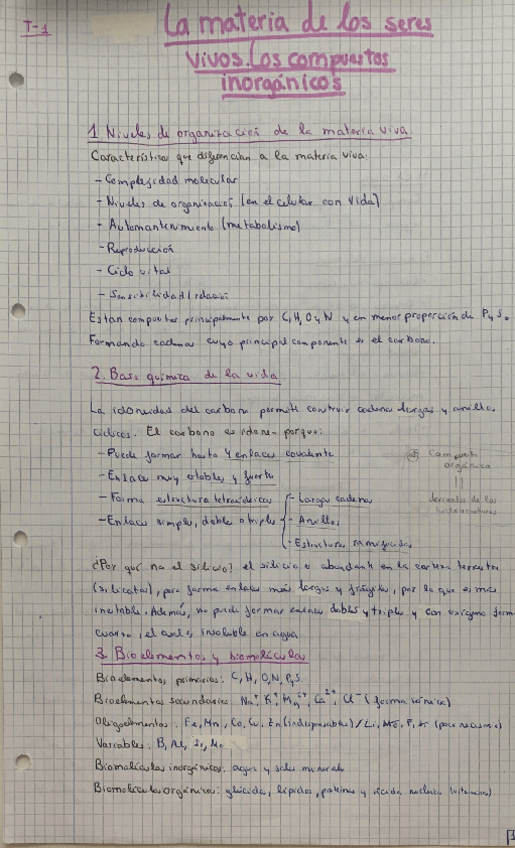 T-1
La materia de los seres
vivos. Los compuestos
inorgánicos
1. Niveles de organización de la materia viva.
Características que diferencian a la materia viva:
- Complejidad molecular
- Niveles de organización (en el celular con vida)
- Automantenimiento (metabolismo)
- Reproducción
- Ciclo vital
- Sensibilidad/relación
Están compuestos principalmente por C, H, O y N y en menor proporción de P y S.
Formando cadenas cuyo principal componente es el carbono.
2. Base química de la vida
La idoneidad del carbono permite construir cadenas largas y anillos
cíclicos. El carbono es idóneo porque:
- Puede formar hasta 4 enlaces covalente
- Enlaces muy estables y fuerte
Compuesto
orgánico
- Forma estructura tetraédricas
- Largas cadenas
derivado de los
- Enlaces simples, dobles o triples
- Anillos
- Estructura ramificadas
¿Por qué no el silicio? el silicio abundante en la corteza terrestre
(silicatos), pero forma enlaces más largos y frágiles, por lo que es más
inestable. Además, no puede formar enlaces dobles y triples y con oxígeno forma
cuarzo, el cual es insoluble en agua
3. Bioelementos y biomolécula
Bioelementos primarios: C, H, O, N, P, S
Bioelementos secundarios: Na⁺, K⁺, Mg²⁺, Ca²⁺, Cl⁻ (forma iónica)
Oligoelementos: Fe, Mn, Co, Cu, Zn (indispensables) / Li,
Variables: B, Al,
Biomolécula inorgánicas: agua y sales minerales
Biomolécula orgánica: glúcidos, lípidos, proteínas y ácidos nucleicos (vitaminas)